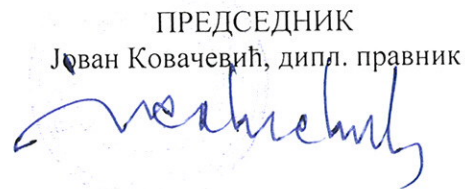 ПРЕДСЕДНИК
Јован Ковачевић, дипл. правник